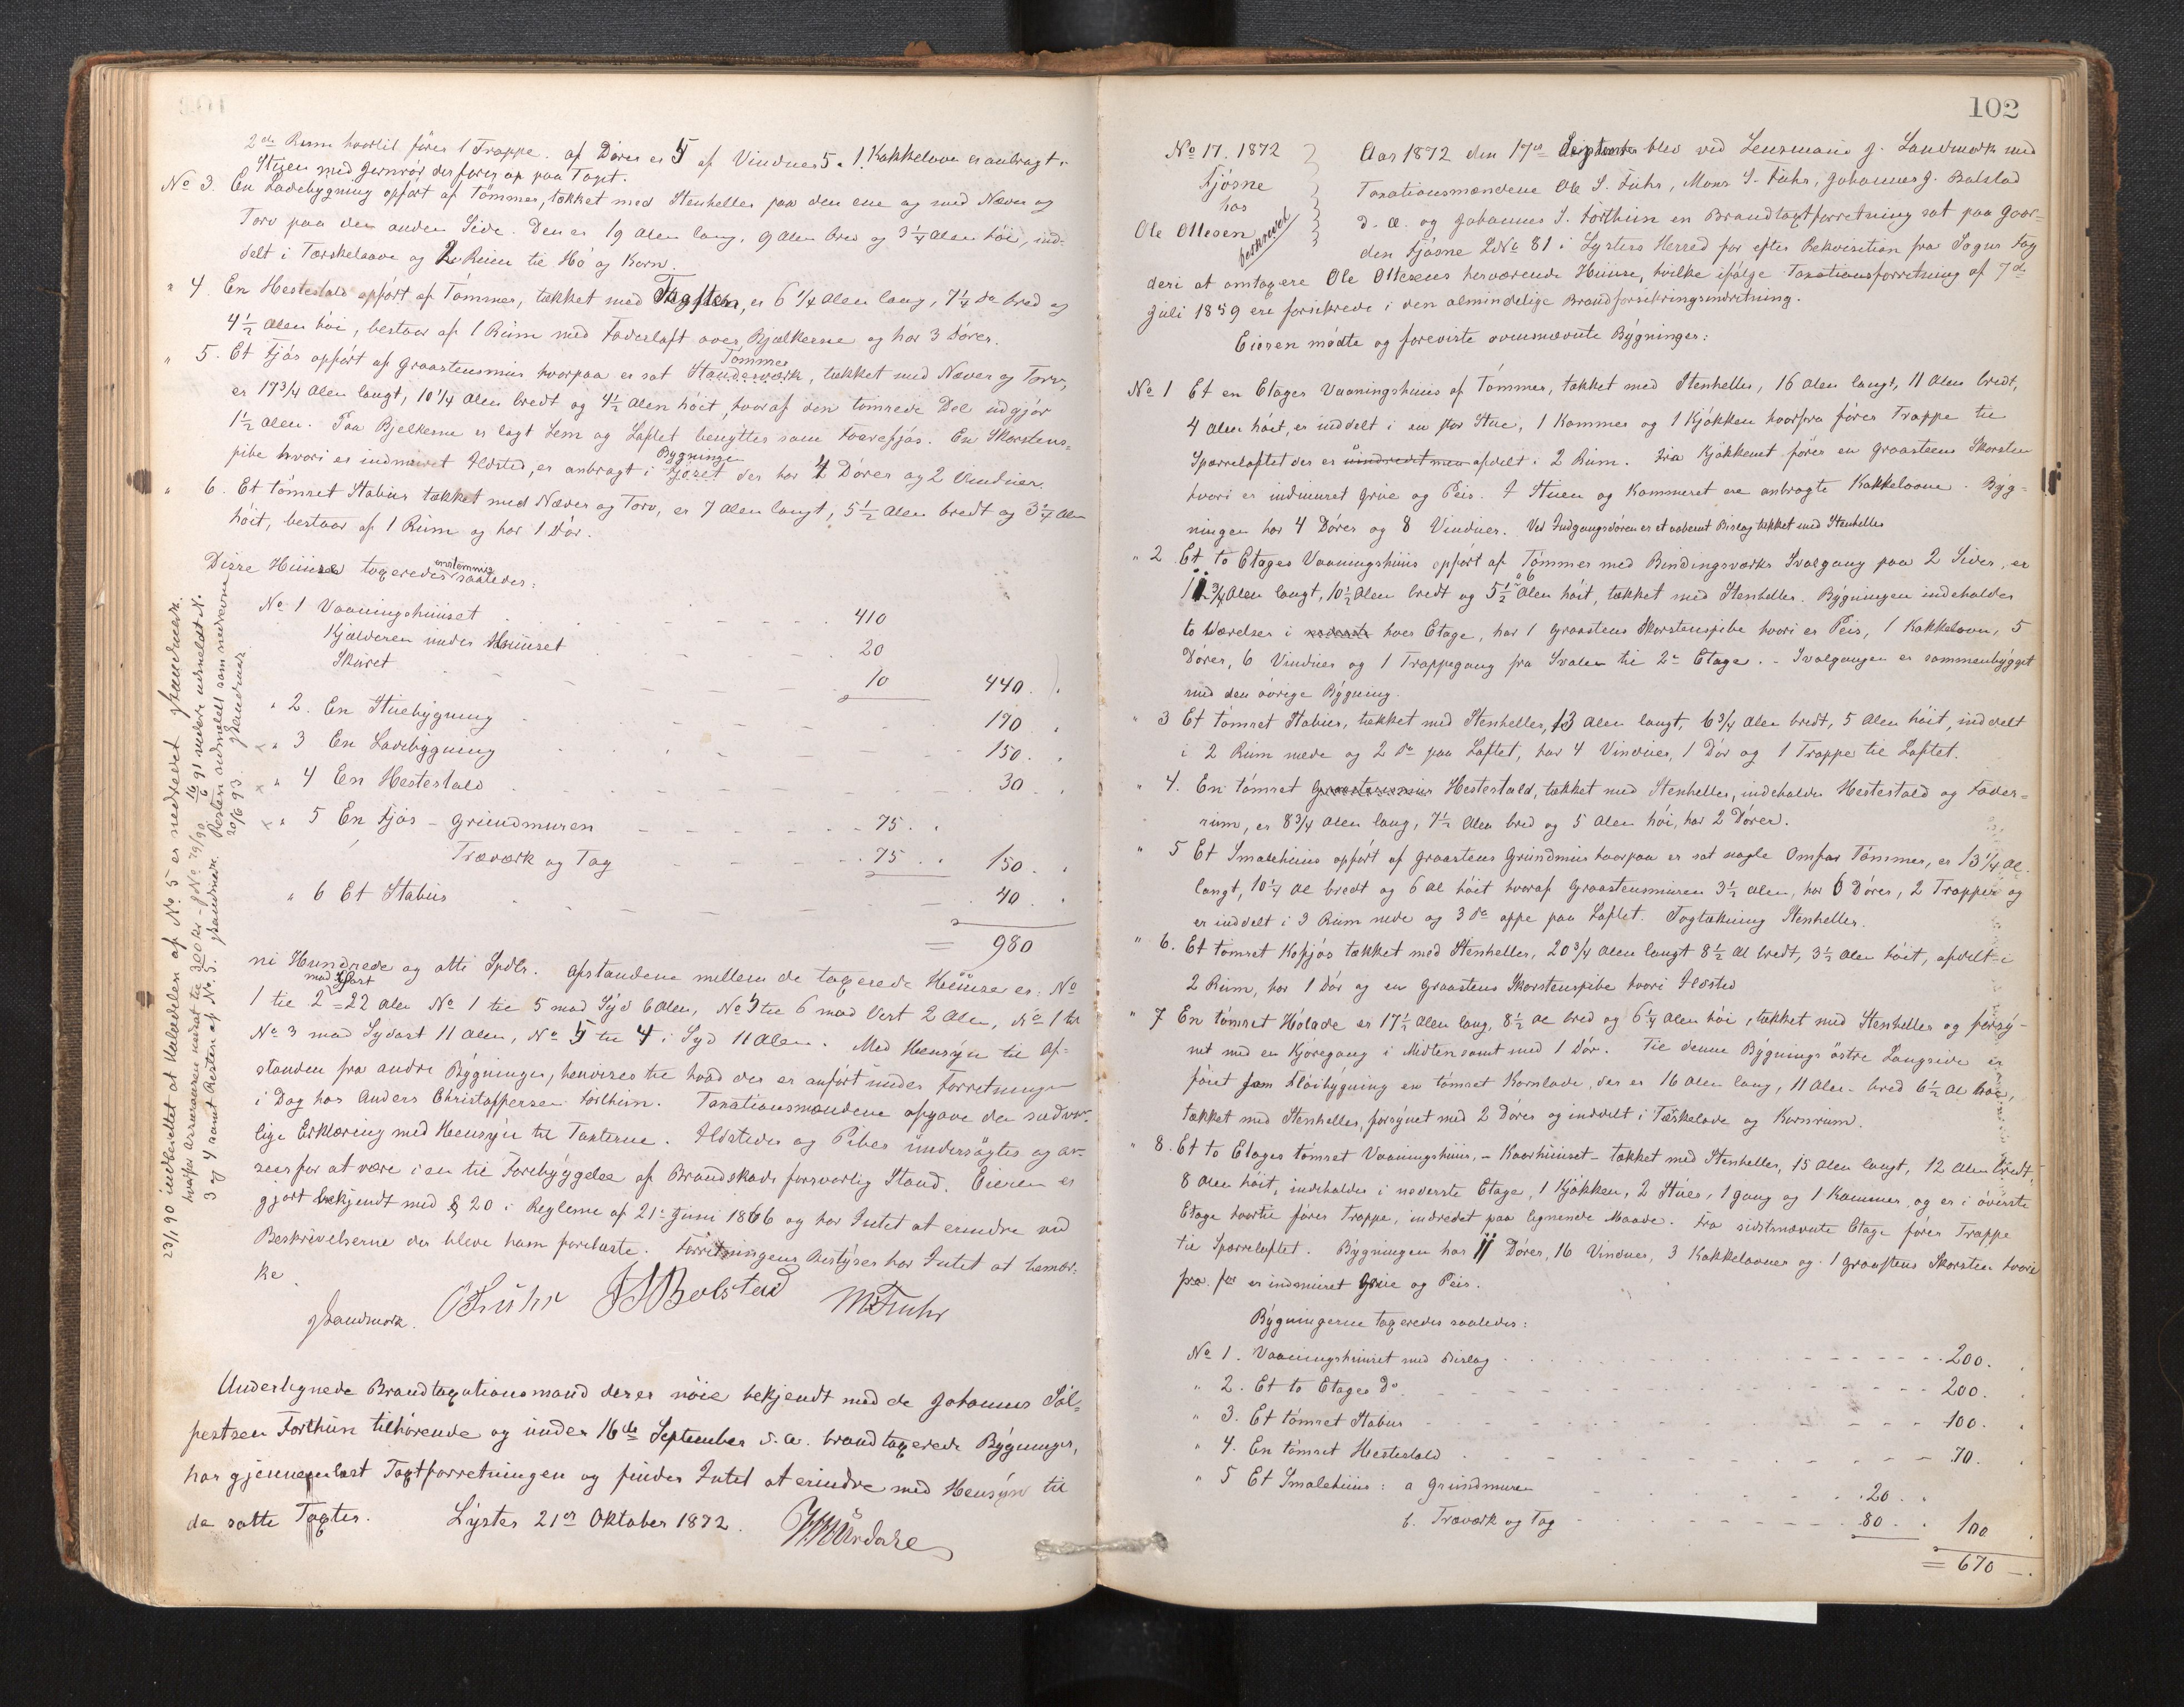 2de Rum hvortil fører 1 Trappe. af Dører er 5 af Vinduer 5. 1 Kakkelovn er anbragt i
Stuen med Jernrør der fører op paa Taget.
No 3. En Ladebygning opført af Tømmer, tækket med Stenheller paa den ene og med Næver og
Torv paa den anden Side. Den er 19 Alen lang, 9 Alen bred og 3 1/4 Alen höi, ind-
delt i Tærskelaave og 2 Rum til Hö og Korn.
" 4. En Hestestald opført af Tømmer, tækket med Tagsten, er 6 1/4 Alen lang, 7 1/4 do bred og
4 1/2 Alen höi, bestaar af 1 Rum med Foderloft over Bjelkerne og har 3 Dører.
Tømmer
" 5. Et Fjös opført af Graastensmur hvorpaa er sat Standerværk, tækket med Næver og Torv,
er 17 3/4 Alen langt, 10 1/4 Alen bredt og 4 1/2 Alen höit, hvoraf den tømrede Del udgjör
1 1/2 Alen. Paa Bjelkerne er lagt Lem og Loftet benyttes som Faarefjös. En Skorstens-
Bygningen
pibe hvori er indmuret Ildsted, er anbragt i Fjöset der har 4 Dører og 2 Vinduer.
" 6. Et tømret Stabur tækket med Næver og Torv, er 7 Alen langt, 5 1/2 Alen bredt og 3 3/4 Alen
höit, bestaar af 1 Rum og har 1 Dör.
enstemmig
Disse Huuse taxeredes saaledes:
No 1 Vaaningshuuset 410
Kjælderen under Huuset 20
Skuret 10 440.
" 2. En Stuebygning 170
" 3 En Ladebygning 150.
" 4 En Hestestald 30
" 5 En Fjös - Grundmuren 75.
Træværk og Tag 75 150.
" 6 Et Stabur 40
= 980
ni Hundrede og otti Spdlr. Afstandene mellem de taxerede Huuse er: No
mod Øst
1 til 2 = 22 Alen No 1 til 5 mod Syd 6 Alen, No 5 til 6 mod Vest 2 Alen, No 1 til
No 3 mod Sydost 11 Alen, No 5 til 4 i Syd 11 Alen. Med Hensyn til Af-
standen fra andre Bygninger, henvises til hvad der er anført under Forretningen
i Dag hos Anders Christoffersen Forthun. Taxationsmændene afgave den sædvan-
lige Erklæring med Hensyn til Taxterne. Ildsteder og Piber undersögtes og an-
saaes for at være i en til Forebyggelse af Brandskade forsvarlig Stand. Eieren er
gjort bekjendt med § 20 i Reglerne af 21de Juni 1866 og har Intet at erindre ved
Beskrivelserne der bleve ham forelæste. Forretningens Bestyrer har Intet at bemær-
ke
JLandmark. OSFuhr JJBolstad MSFuhr
Undertegnede Brandtaxationsmand der er nöie bekjendt med de Johannes Sjul-
festsen Forthun tilhörende og under 16de September d. A. brandtaxerede Bygninger,
har gjennemlæst Taxtforretningen og finder Intet at erindre med Hensyn til
de satte Taxter. Lyster 21de Oktober 1872.
23/1 90 indberettet at Kalvdelen af No 5 er nedrevet JLandmark.
3 og 4 samt Resten af No 5. JLandmark. Resten anmeldt som nedreven
20/6 93. JLandmark
102
No 17. 1872
Fjösne
hos
Ole Ottesen
beskrevet
Aar 1872 den 17de September blev ved Lensmand J. Landmark med
Taxationsmændene Ole S. Fuhr, Mons S. Fuhr, Johannes J. Bolstad
d. æ. og Johannes S. Forthun en Brandtaxtforretning sat paa Gaar-
den Fjösne LNo 81 i Lysters Herred for efter Rekvisition fra Sogne Fog-
deri at omtaxere Ole Ottesens herværende Huuse, hvilke ifølge Taxationsforretning af 7de
Juli 1859 ere forsikrede i den almindelige Brandforsikringsindretning.
Eieren mödte og foreviste ovennævnte Bygninger:
No 1 Et en Etages Vaaningshuus af Tømmer, tækket med Stenheller, 16 Alen langt, 11 Alen bredt,
4 Alen höit, er inddelt i en stor Stue, 1 Kammer og 1 Kjökken hvorfra förer Trappe til
Sparreloftet der er uindredet men afdelt i 2 Rum. Fra Kjökkenet förer en Graasteens Skorsten
hvori er indmuret Grue og Peis. I Stuen og Kammeret ere anbragte Kakkelovne. Byg-
ningen har 4 Dører og 8 Vinduer. Ved Indgangsdören er et aabent Bislag tækket med Stenheller
" 2. Et to Etages Vaaningshuus opført af Tømmer med Bindingsværks Svalgang paa 2 Sider, er
11 3/4 Alen langt, 10 1/2 Alen bredt og 5 1/2 Alen höit, tækket med Stenheller. Bygningen indeholder
to Værelser i nederste hver Etage, har 1 Graastens Skorstenspibe hvori er Peis, 1 Kakkelovn, 5
Dører, 6 Vinduer og 1 Trappegang fra Svalen til 2den Etage. - Svalgangen er sammenbygget
med den övrige Bygning.
" 3 Et tømret Stabur, tækket med Stenheller, 13 Alen langt, 6 3/4 Alen bredt, 5 Alen höit, inddelt
i 2 Rum nede og 2 do paa Loftet, har 4 Vinduer, 1 Dör og 1 Trappe til Loftet.
" 4. En tømret Graastensmur Hestestald, tækket med Stenheller, indeholder Hestestald og Foder-
rum, er 8 3/4 Alen lang, 7 1/2 Alen bred og 5 Alen höi, har 2 Dører.
" 5 Et Smalehuus opført af Graastens Grundmur hvorpaa er sat nogle Omfar Tømmer, er 13 1/4 Al.
langt, 10 1/4 Al bredt og 6 Al höit hvoraf Graastensmuren 3 1/2 Alen, har 6 Dører, 2 Trapper og
er inddelt i 3 Rum nede og 3 do oppe paa Loftet. Tagtækning Stenheller.
" 6. Et tømret Kofjös tækket med Stenheller, 20 3/4 Alen langt 8 1/2 Al bredt, 3 1/2 Alen höit, afdelt i
2 Rum, har 1 Dör og en Graastens Skorstenspibe hvori Ildsted
" 7 En tømret Hölade er 17 1/2 Alen lang, 8 1/2 Al bred og 6 1/4 Alen höi, tækket med Stenheller og forsy-
net med en Kjöregang i Midten samt med 1 Dör. Til denne Bygnings östre Langside er
föiet som Flöibygning en tømret Kornlade, der er 16 Alen lang, 11 Alen bred 6 1/2 Al höi,
tækket med Stenheller, forsynet med 2 Dører og inddelt i Tærskelade og Kornrum.
" 8. Et to Etages tømret Vaaningshuus, - Kaarhuuset - tækket med Stenheller, 15 Alen langt, 12 Alen bredt,
8 Alen höit, indeholder i nederste Etage, 1 Kjökken, 2 Stuer, 1 Gang og 1 Kammer og er i överste
Etage hvortil förer Trappe, indredet paa lignende Maade. Fra sidstnævnte Etage förer Trappe
til Sparreloftet. Bygningen har 11 Dører, 16 Vinduer, 3 Kakkelovner og 1 Graastens Skorsten hvori
er indmuret Grue og Peis.
Bygningerne taxeredes saaledes:
No 1. Vaaningshuuset med Bislag 200.
" 2. Et to Etages do 200.
" 3. Et tømret Stabur 100.
" 4. En tømret Hestestald 70.
" 5 Et Smalehuus: a Grundmuren 20
b. Træværk og Tag 80 100
= 670